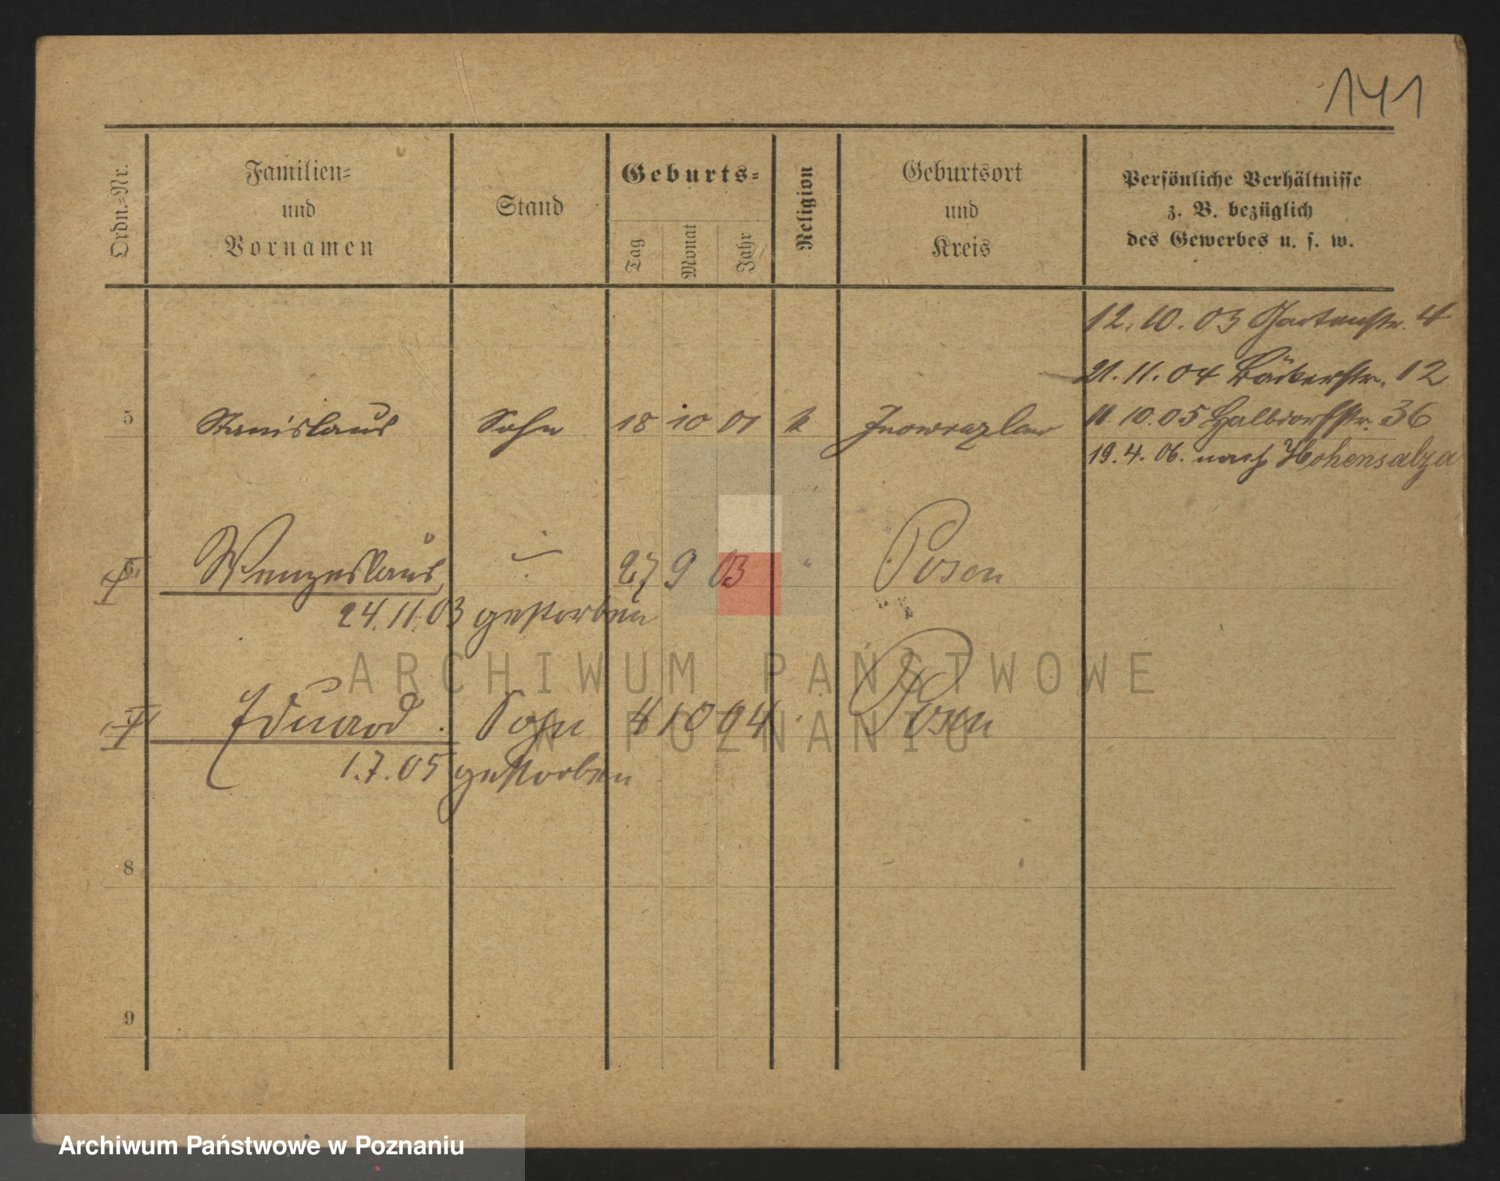 141
Ordn.-Nr.
Familien-
und
Vornamen
Stand
Geburts-
Tag
Monat
Jahr
Religion
Geburtsort
und
Kreis
Persönliche Verhältnisse
z. B. bezüglich
des Gewerbes u. s. w.
12. 10. 03 Gartenstr. 4
21. 11. 04 Bäckerstr. 12
5 Stanislaus Sohn 18 10 01 k Inowrazlaw 11 10. 05 Halbdorfstr. 36
19. 4. 06. nach Hohensalza
6 Wenzeslaus 27 9 03 " Posen
24. 11. 03 gestorben
Eduard . Sohn 4 10 04 Posen
1. 7. 05 gestorben
8
9
ARCHIWUM PAŃSTWOWE
W POZNANIU
Archiwum Państwowe w Poznaniu